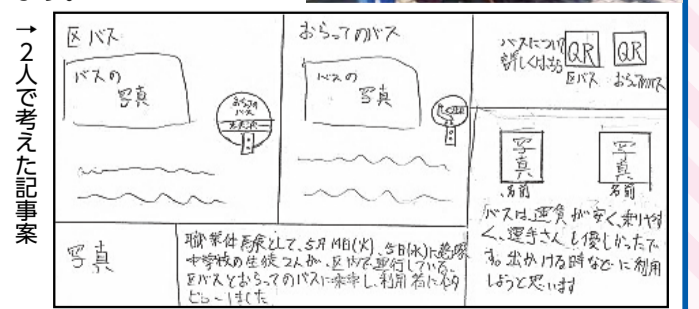 →2人で考えた記事案
区バス
バスの
写真
おらってのバス
バスの
写真
おらっての
バス
バスについて
詳しくはこちら
QR
QR
区バス
おらってのバス
写真
名前
写真
名前
バスは、運賃が安く乗りやす
く、運手さんも優しかったで
す。出かける時などに利用
しようと思います
写真
職業体験として、5月14日(火)、15日(水)に
中学校の生徒2人が、区内で運行している、
区バスとおらってのバスに乗車し、利用者にインタ
ビューしました